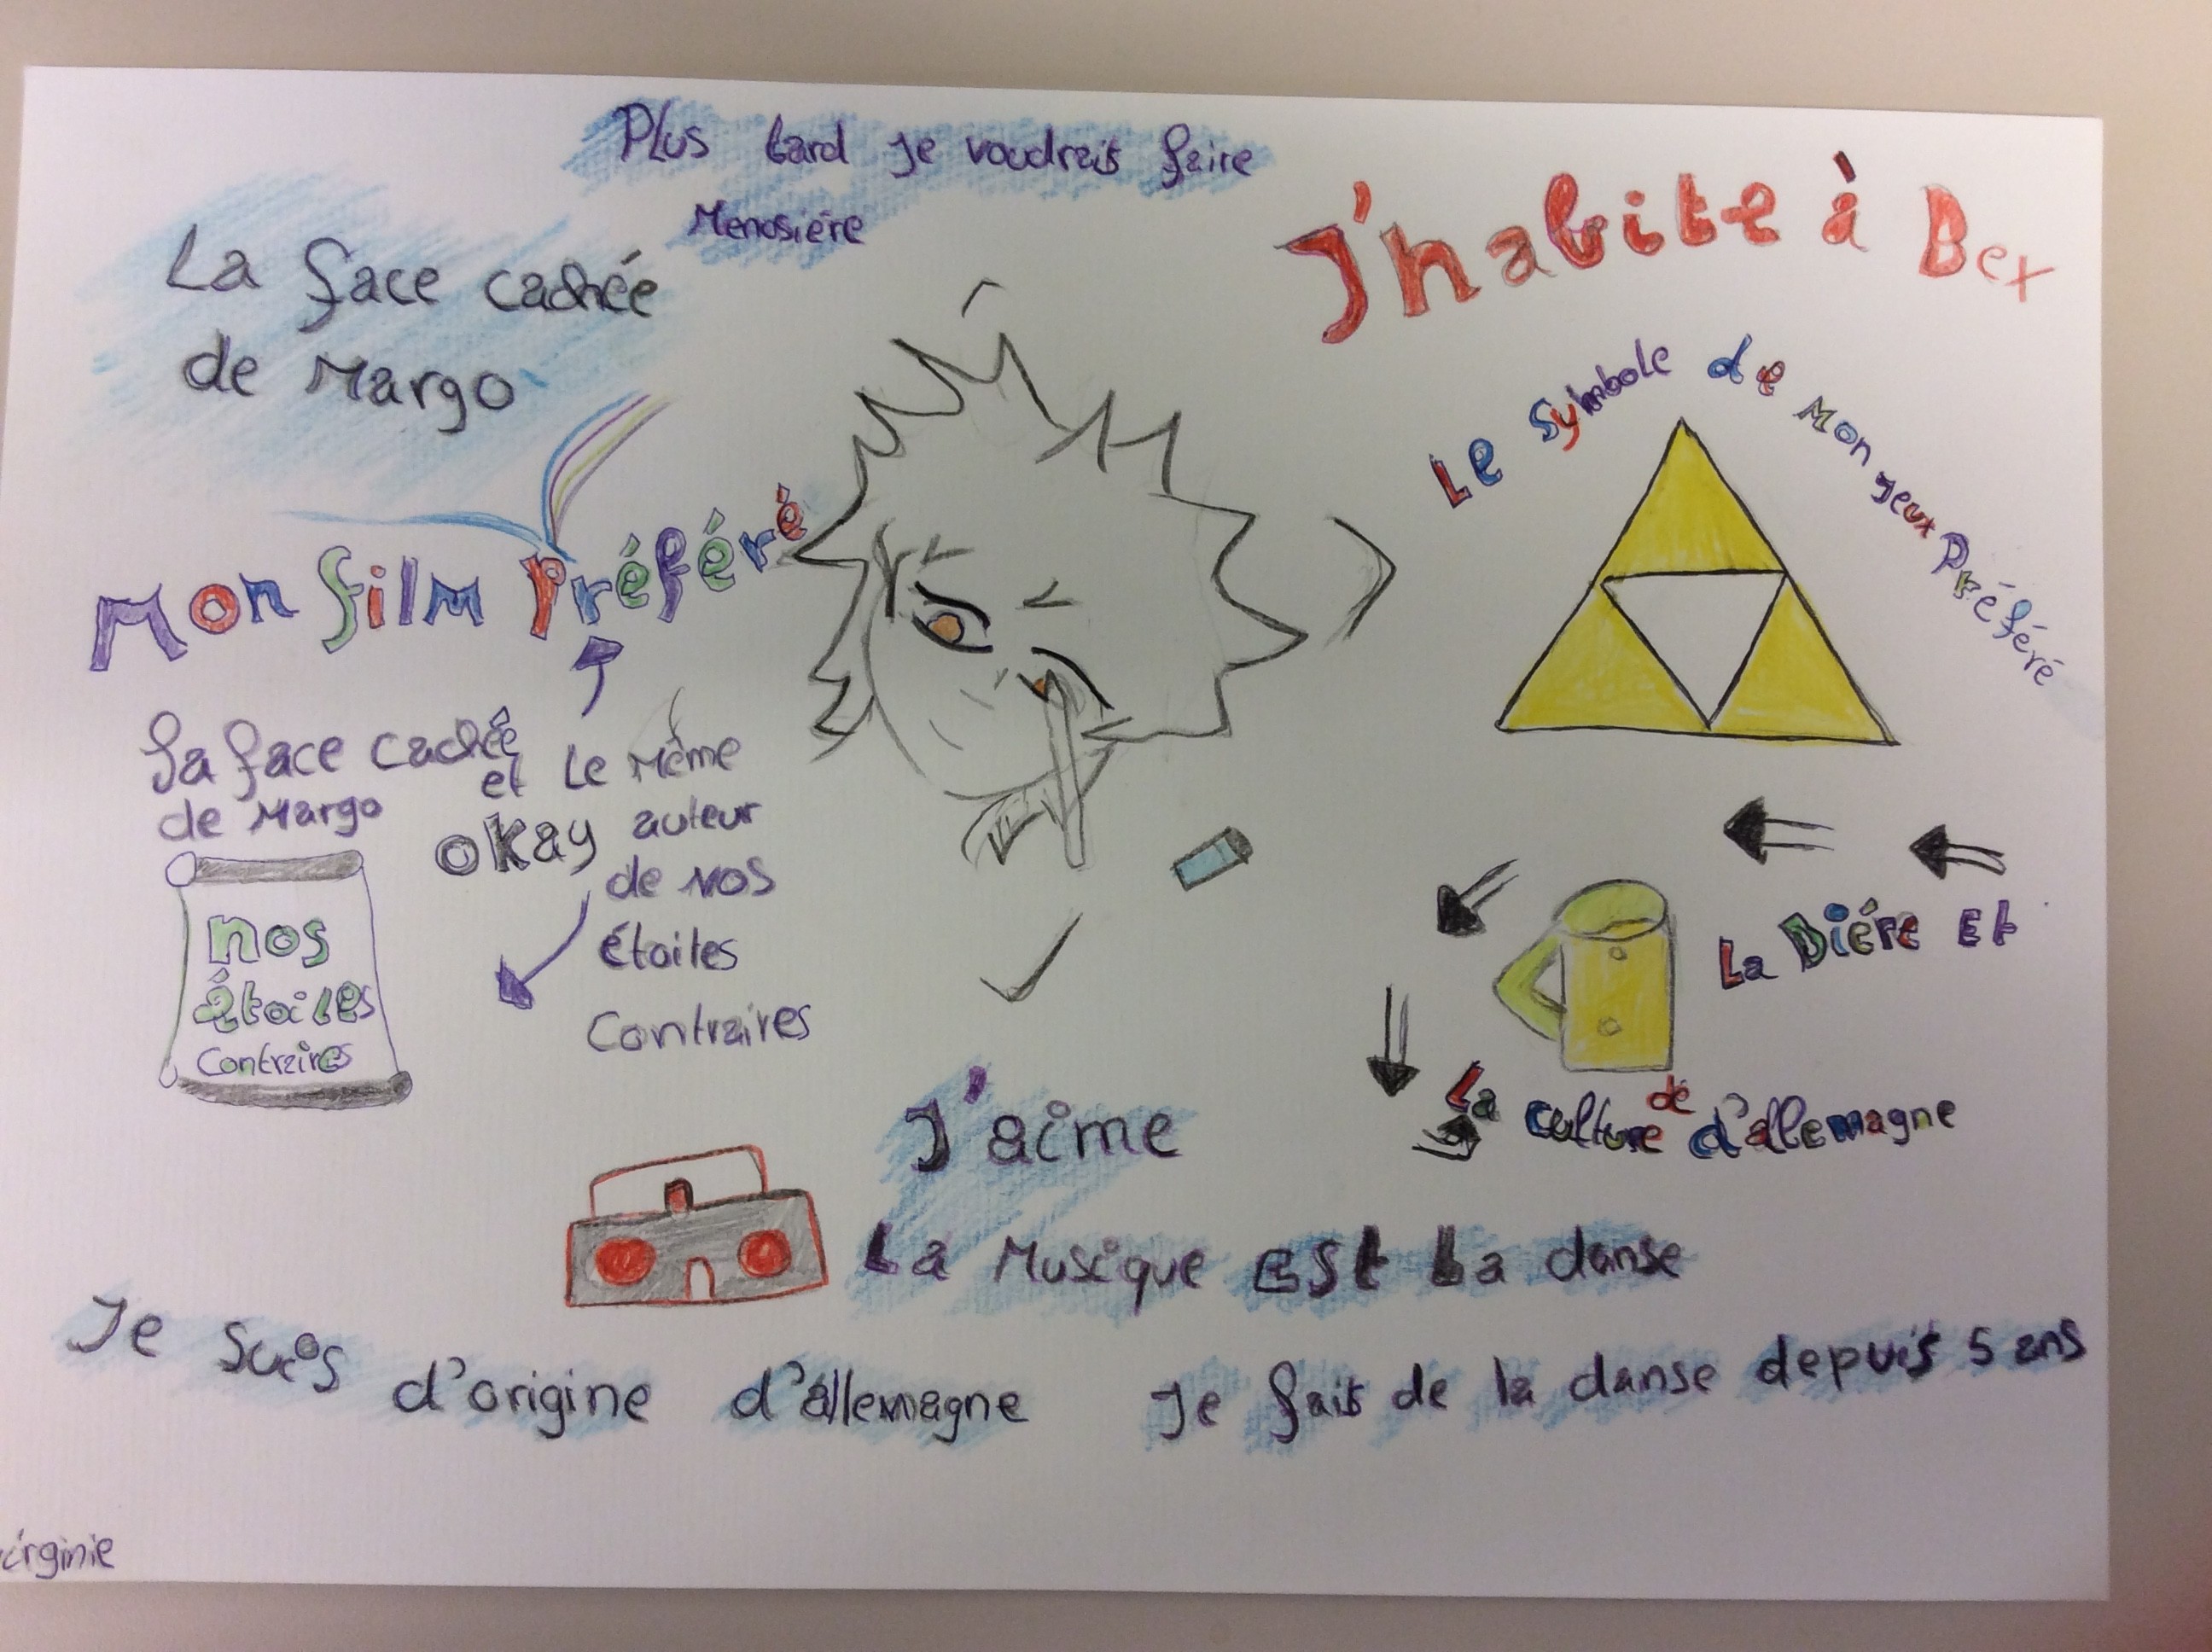 Plus tard je voudrais faire
Menosière
La face cachée
de Margo
J'habite à Bex
Le Symbole de Mon jeux Préféré
Mon film Préféré
La face cachée
de Margo
et Le Même
auteur
de NOS
étoiles
Contraires
okay
nos
étoiles
Contraires
La Bière Et
La culture de d'allemagne
J'aime
La Musique Est La danse
Je Suis d'origine d'allemagne
Je fais de la danse depuis 5 ans
virginie